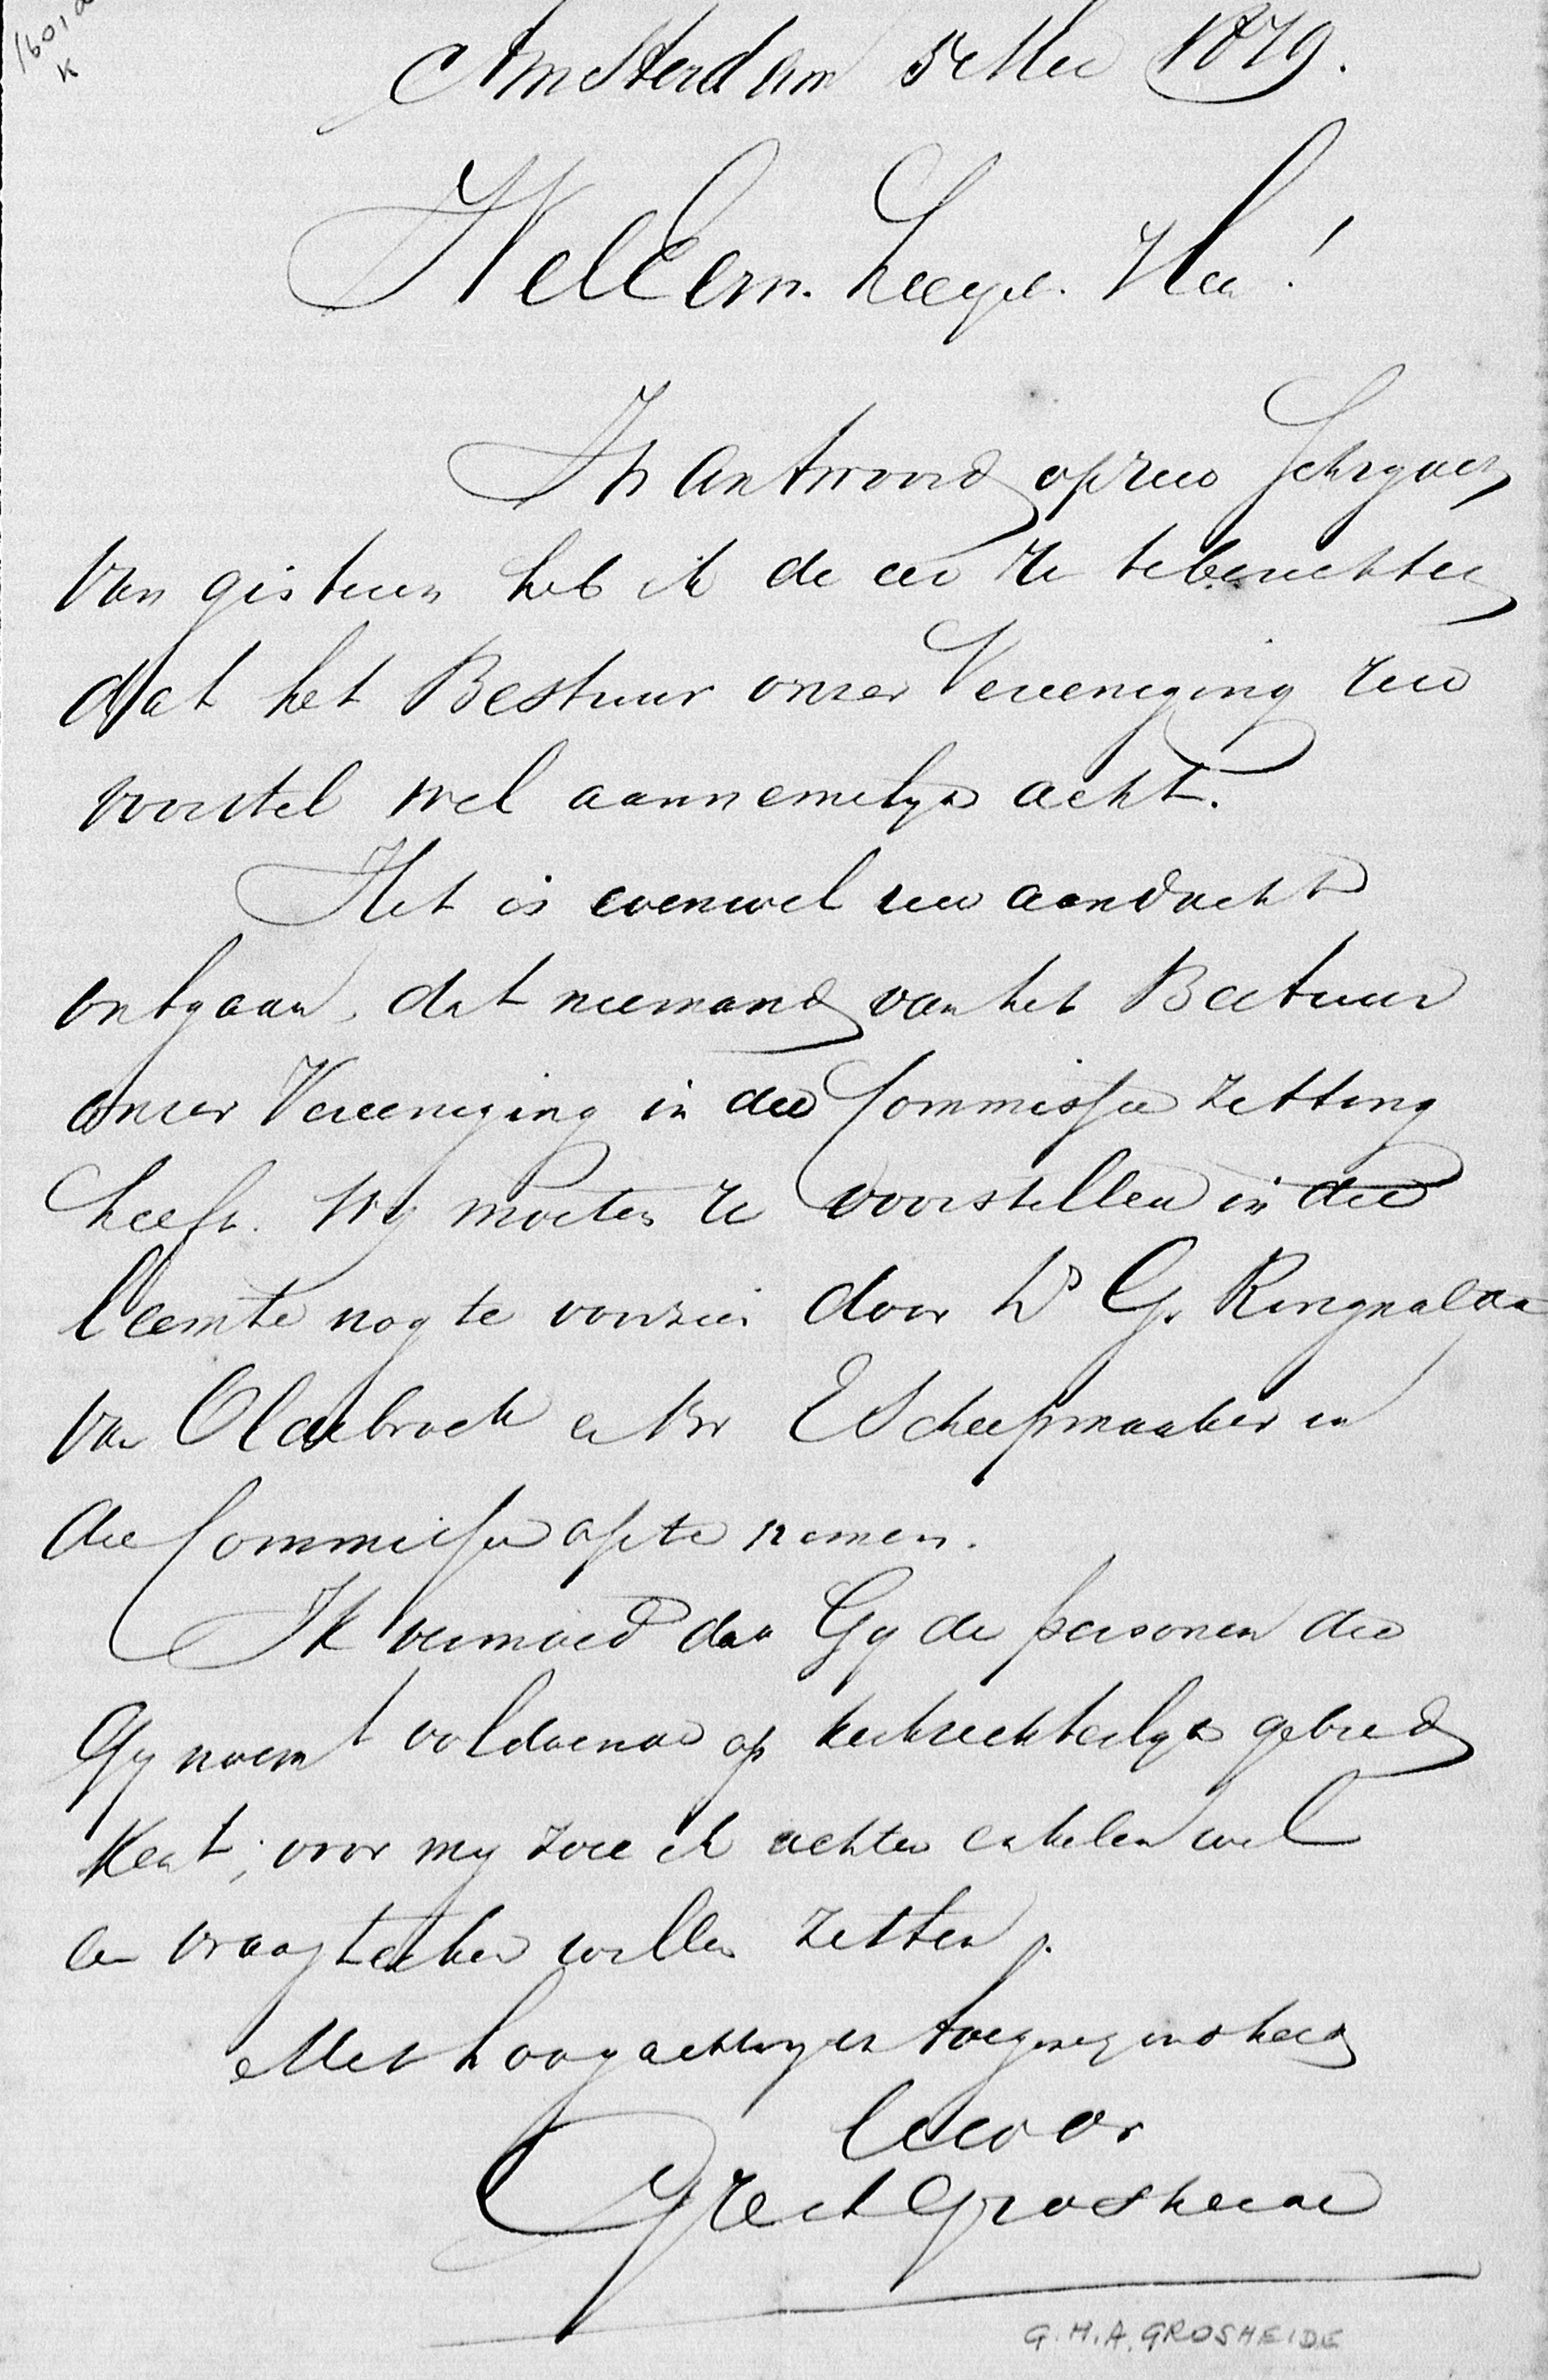 1601a
K
Amsterdam 5 Mei 1879.
WelEerw. Zeergel. Heer!
In antwoord op uw schryven
van gisteren heb ik de eer U te berichten
dat het Bestuur onzer Vereeniging uw
voorstel wel aannemelyk acht.
Het is evenwel uw aandacht
ontgaan, dat niemand van het Bestuur
onzer Vereeniging in die Commissie zitting
heeft. Wy moeten U voorstellen in die
leemte nog te voorzien door Ds G. Ringnalda
van Oldebroek en Br E Scheepmaaker in
die Commissie op te nemen.
Ik vermoed dat Gy de personen die
Gy noemt voldoende op kerkrechterlyk gebied
kent; voor my zou ik achter enkelen wel
een vraagteeken willen zetten.
Met hoogachting en toegenegenheid
Uw dr
Grosheide
G.H.A. GROSHEIDE